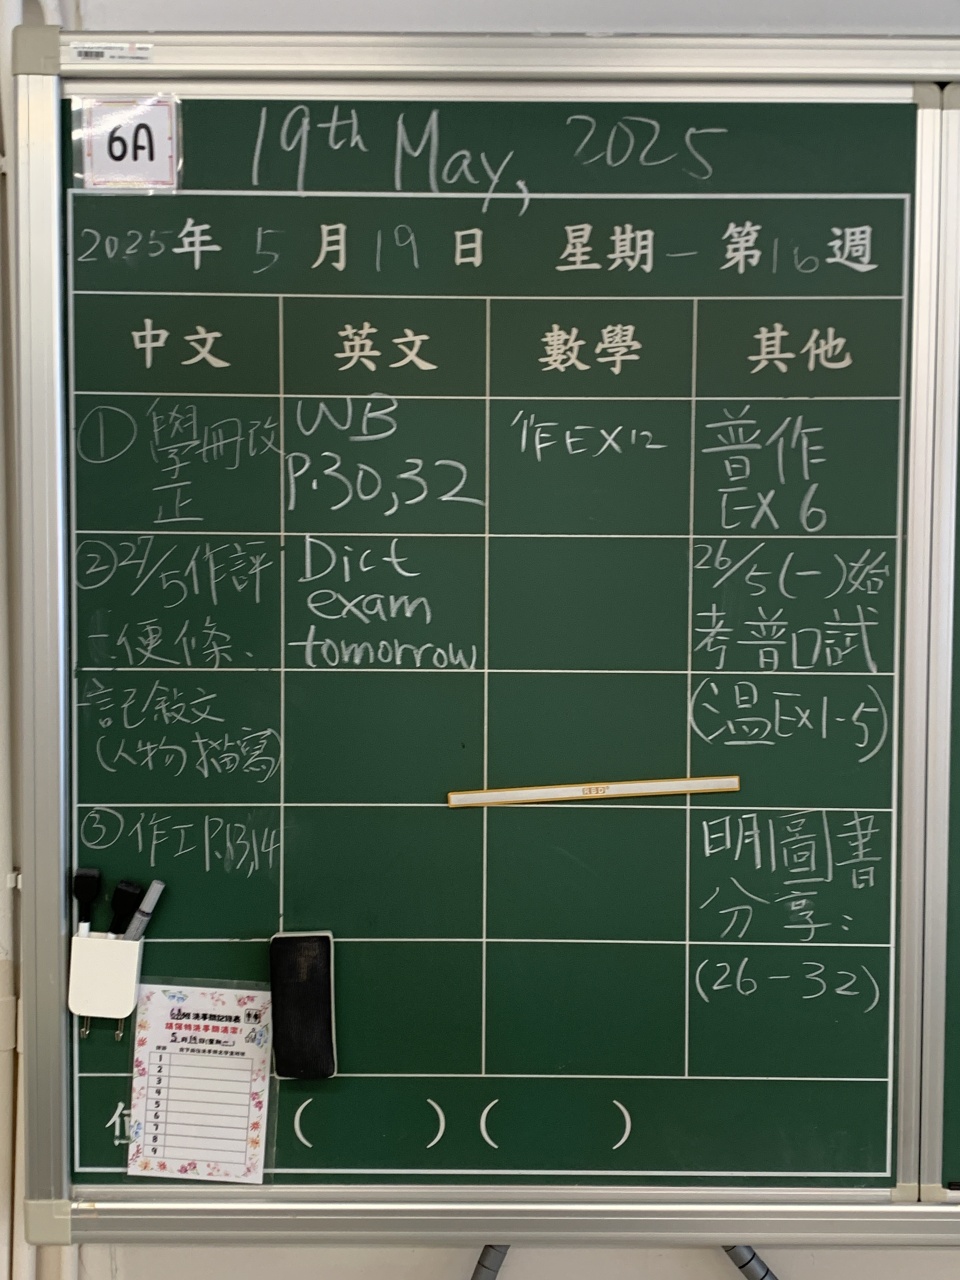 6A
19th May, 2025
2025年 5月19日 星期一 第16週
中文 英文 數學 其他
① 學冊改
正
② 27/5作評
-便條、
-記敘文
(人物描寫)
③ 作工P.13,14
WB
P.30,32
Dict
exam
tomorrow
作EX12
普作
EX 6
26/5(一)始
考普口試
(溫EX1-5)
明圖書
分享:
(26-32)
6A班洗事頭記錄表
5月19日(星期一)
1
2
3
4
5
6
7
8
9
( ) ( )